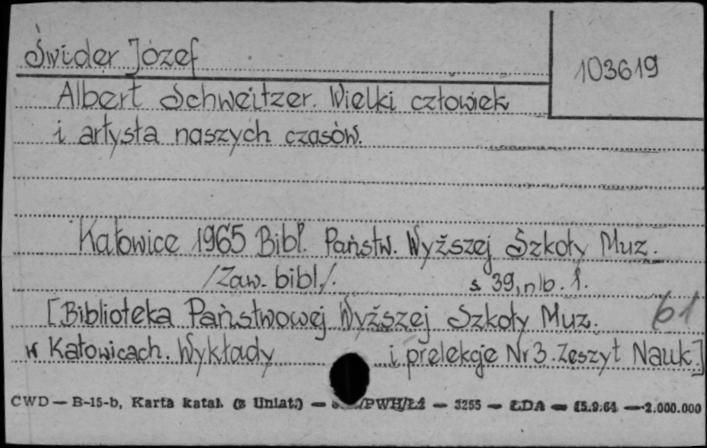 Świder Józef
103619
Albert Schweitzer. Wielki człowiek
i artysta naszych czasów.
Katowice 1965 Bibl. Państw. Wyższej Szkoły Muz.
/Zaw. bibl./. s 39, nlb. 1.
[Biblioteka Państwowej Wyższej Szkoły Muz. 61
w Katowicach. Wykłady i prelekcje Nr 3. Zeszyt Nauk.]
CWD — B-15-b, Karta katal. (z Uniat.) — /PWH/Łż — 3255 — ŁDA — 15.9.64 — 2.000.000